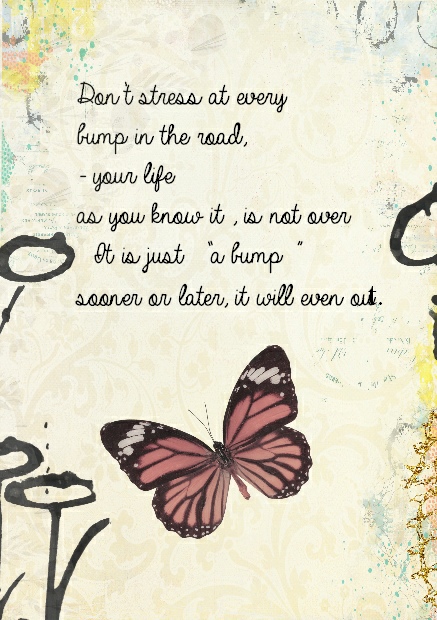 Don't stress at every
bump in the road,
- your life
as you know it , is not over
It is just "a bump "
sooner or later, it will even out.